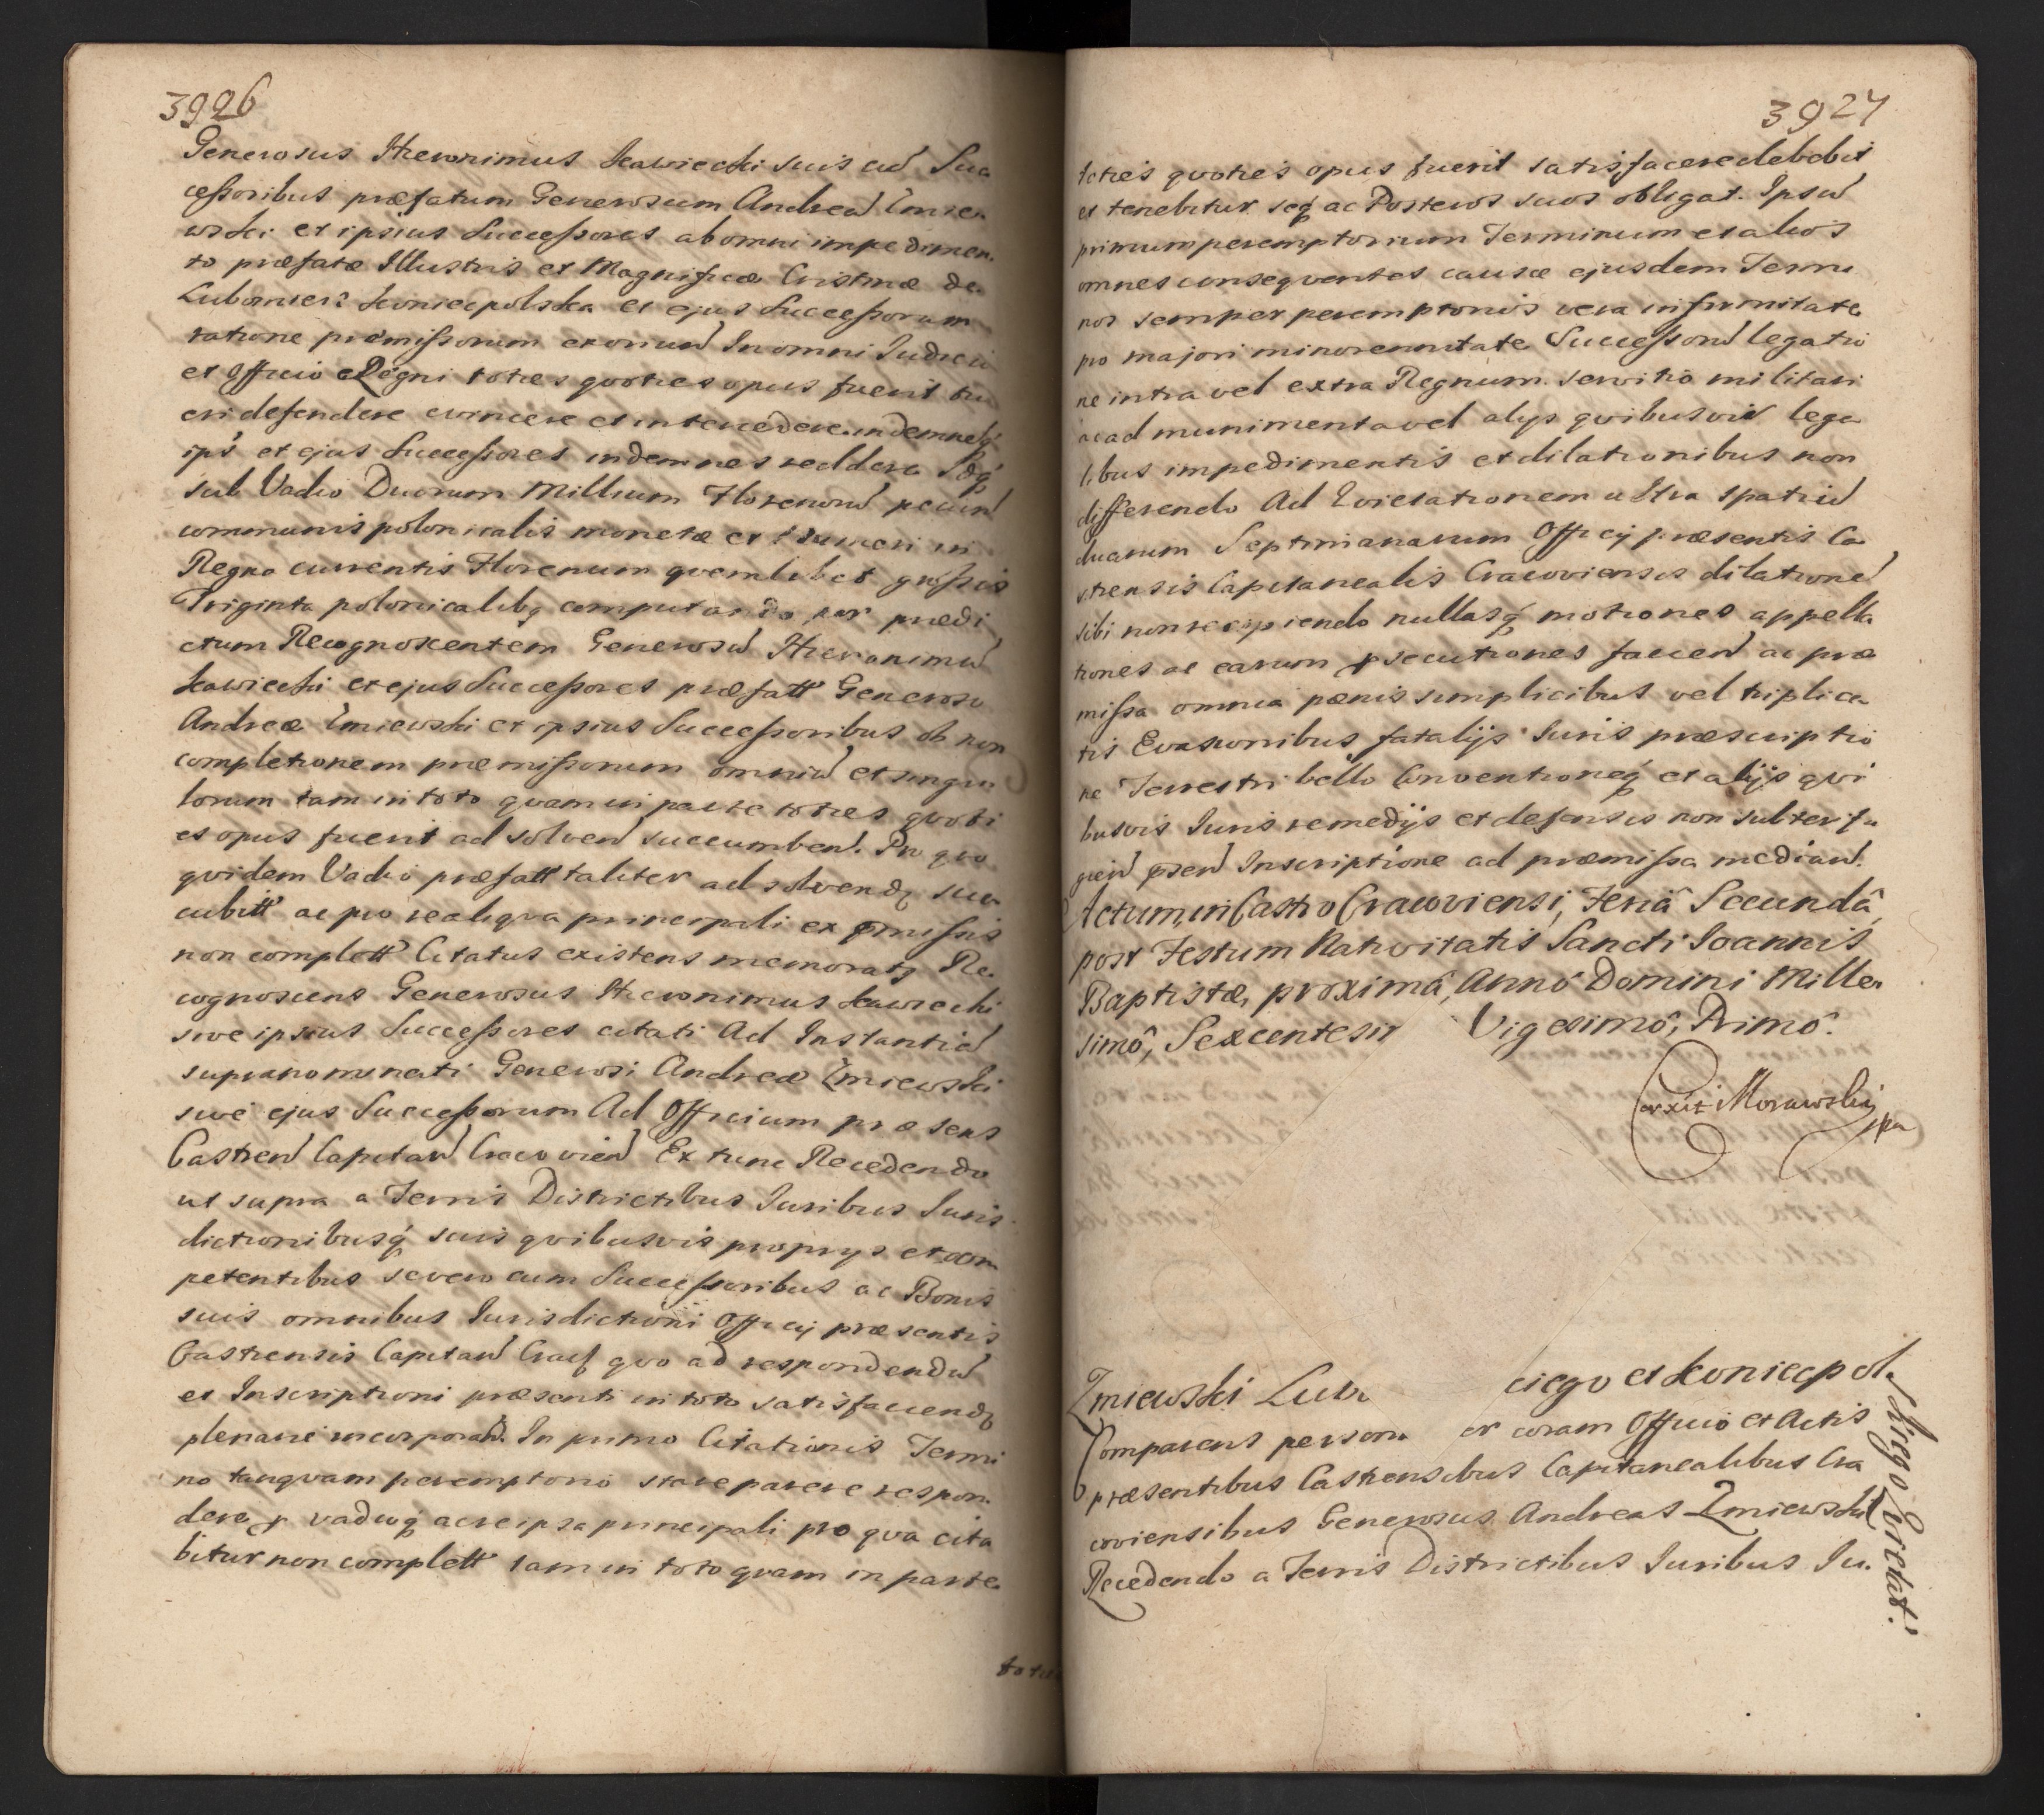 3926
Generosus Hieronimus Kawiecki suis cu Suc
cessoribus præfatum Generosum Andrea Żmie
wski et ipsius Successores ab omni impedimen
to præfatæ Illustris et Magnificæ Cristinæ de
Lubomierz Koniecpolska et ejus Successorum
ratione præmissorum exoriun In omni Judicii
et Officio Regni toties qvoties opus fuerit tu
eri defendere evincere et intercedere indemneq
ips et ejus Successores indemnes reddere Idq
sub Vadio Duorum Millium Florenoru pecun
communis polonicalis monetæ et numeri in
Regno currentis Florenum qvemlibet grossis
Triginta polonicalibq computando per prædi
ctum Recognoscentem Generosu Hieronimu
Kawiecki et ejus Successores præfatt Generoso
Andreæ Żmiewski et ipsius Successoribus ob non
completionem præmissorum omniu et singu
lorum tam in toto qvam in parte toties qvoti
es opus fuerit ad solven succumben. Pro qvo
qvidem Vadio præfatt taliter ad solvendq suc
cubitt ac pro re aliqva principali ex pmissis
non complett Citatus existens memoratq Re
cognoscens Generosus Hieronimus Kawiecki
sive ipsius Successores citati Ad Instantia
supranominati Generosi Andreæ Żmiewski
sive ejus Successorum Ad Officium præsens
Castren Capitan Cracovien Ex tunc Recedendo
ut supra a Terris Districtibus Juribus Juris
dictionibusq suis qvibusvis proprys et com
petentibus se vero cum Successoribus ac Bonis
suis omnibus Jurisdictioni Officy præsentis
Castrensis Capitan Cracq qvo ad respondendu
et Inscriptioni præsenti in toto satisfaciendq
plenarie incorporand. In primo Citationis Termi
no tanqvam peremptorio stare parere respon
dere vadioq ac re ipsa principali pro qva cita
bitur non complett tam in toto qvam in parte
toties
3927
toties qvoties opus fuerit satisfacere debebit
et tenebitur seq ac Posteros suos obligat. Ipsu
primum peremptorium Terminum et alios
omnes conseqventes causæ ejusdem Termi
nos semper peremptorios vera infirmitate
pro majori minorennitate Successoru legatio
ne intra vel extra Regnum servitio militari
ac ad munimenta vel alys qvibusvis lega
libus impedimentis et dilationibus non
differendo Ad Evictationem ultra spatiu
duarum Septimanarum Officy præsentis Ca
strensis Capitanealis Cracoviensis dilatione
sibi non recipiendo nullasq motiones appella
tiones ac earum psecutiones facien ac præ
missa omnia pænis simplicibus vel triplica
tis Evasionibus fatalijs Juris præscriptio
ne Terrestri bello Conventioneq et alijs qvi
busvis Juris remedijs et defensis non subterfu
gien psen Inscriptione ad præmissa median.
Actum in Castro Cracoviensi, Feriâ Secundâ
post Festum Nativitatis Sancti Joannis
Baptistæ, proximâ, Annô Domini Mille
simô, Sexcentesi Vigesimô, Primô.
Corexit Morawski
mpa
Żmiewski Lub ciego et Koniecpol
skiego Evictat.
Comparens person er coram Officio et Actis
præsentibus Castrensibus Capitanealibus Cra
coviensibus Generosus Andreas Żmiewski
Recedendo a Terris Districtibus Juribus Ju